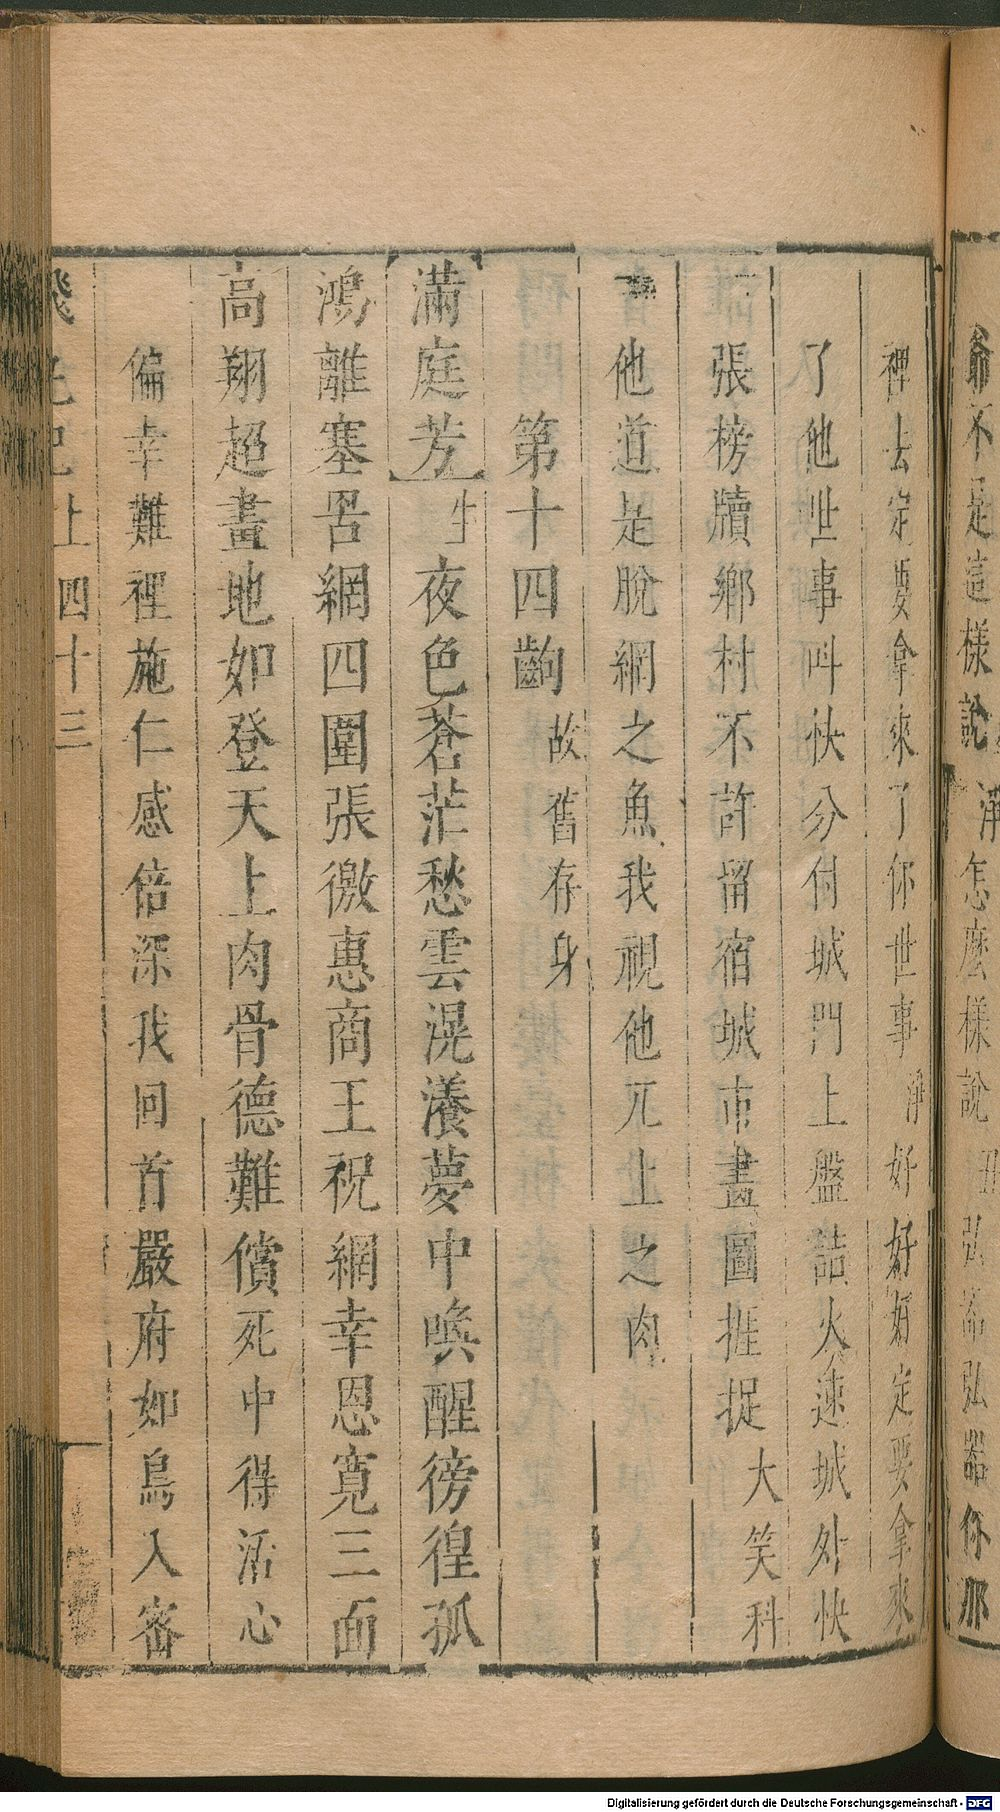 爺不是這樣說淨怎麼樣說丑弘器弘器你那
裡去定要拿來了你世事淨好好好定要拿來
了他世事叫快分付城門上盤詰火速城外快
張榜牘鄉村不許留宿城市畫圖捱捉大笑科
他道是脫網之魚我視他兀上之肉
第十四齣故舊存身
滿庭芳生夜色蒼茫愁雲滉瀁夢中喚醒徬徨孤
鴻離塞罟網四圍張徼惠商王祝網幸恩寬三面
高翔超畫地如登天上肉骨德難償死中得活心
偏幸難裡施仁感倍深我回首嚴府如鳥入密
飛丸記上四十三
Digitalisierung gefördert durch die Deutsche Forschungsgemeinschaft - DFG